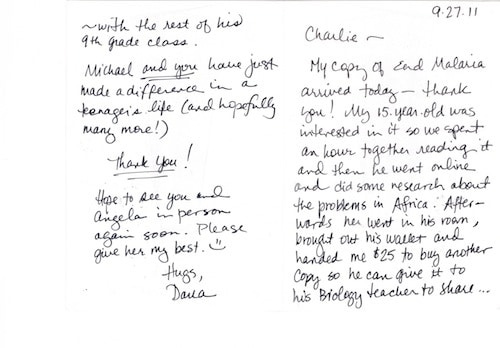 9.27.11
Charlie ~
My copy of End Malaria
arrived today — thank
you! My 15.year.old was
interested in it so we spent
an hour together reading it
and then he went online
and did some research about
the problems in Africa. After-
wards he went in his room,
brought out his wallet and
handed me $25 to buy another
copy so he can give it to
his Biology teacher to share...
~with the rest of his
9th grade class.
Michael and you have just
made a difference in a
teenager's life (and hopefully
many more!)
Thank you!
Hope to see you and
Angela in person
again soon. Please
give her my best. ☺
Hugs,
Dana